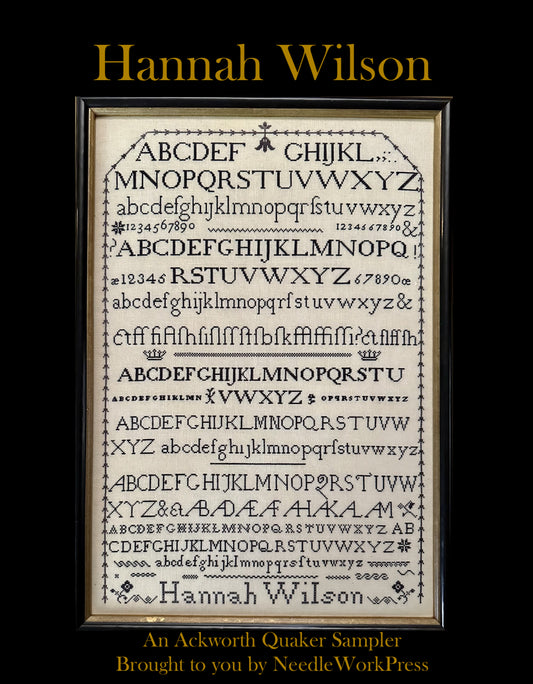 Hannah Wilson
ABCDEF GHIJKL,,;:.
MNOPQRSTUVWXYZ
abcdefghijklmnopqrſstuvwxyz
1234567890 1234567890&
?ABCDEFGHIJKLMNOPQ!
æ12345 RSTUVWXYZ 67890œ
abcdefghijklmnopqrſstuvwxyz&
ABCDEFGHIJKLMNOPQRSTU
ABCDEFGHIKLMN VWXYZ OPQRSTUVWXYZ
ABCDEFGHIJKLMNOPQRSTUVW
XYZ abcdefghijklmnopqrsſtuvwxyz
ABCDEFGHIJKLMNOPQRSTUVW
XYZ&
ABCDEFGHIJKLMNOPQRSTUVWXYZ AB
CDEFGHIJKLMNOPQRSTUVWXYZ
abcdefghijklmnopqrsſtuvwxyz
Hannah Wilson
An Ackworth Quaker Sampler
Brought to you by NeedleWorkPress